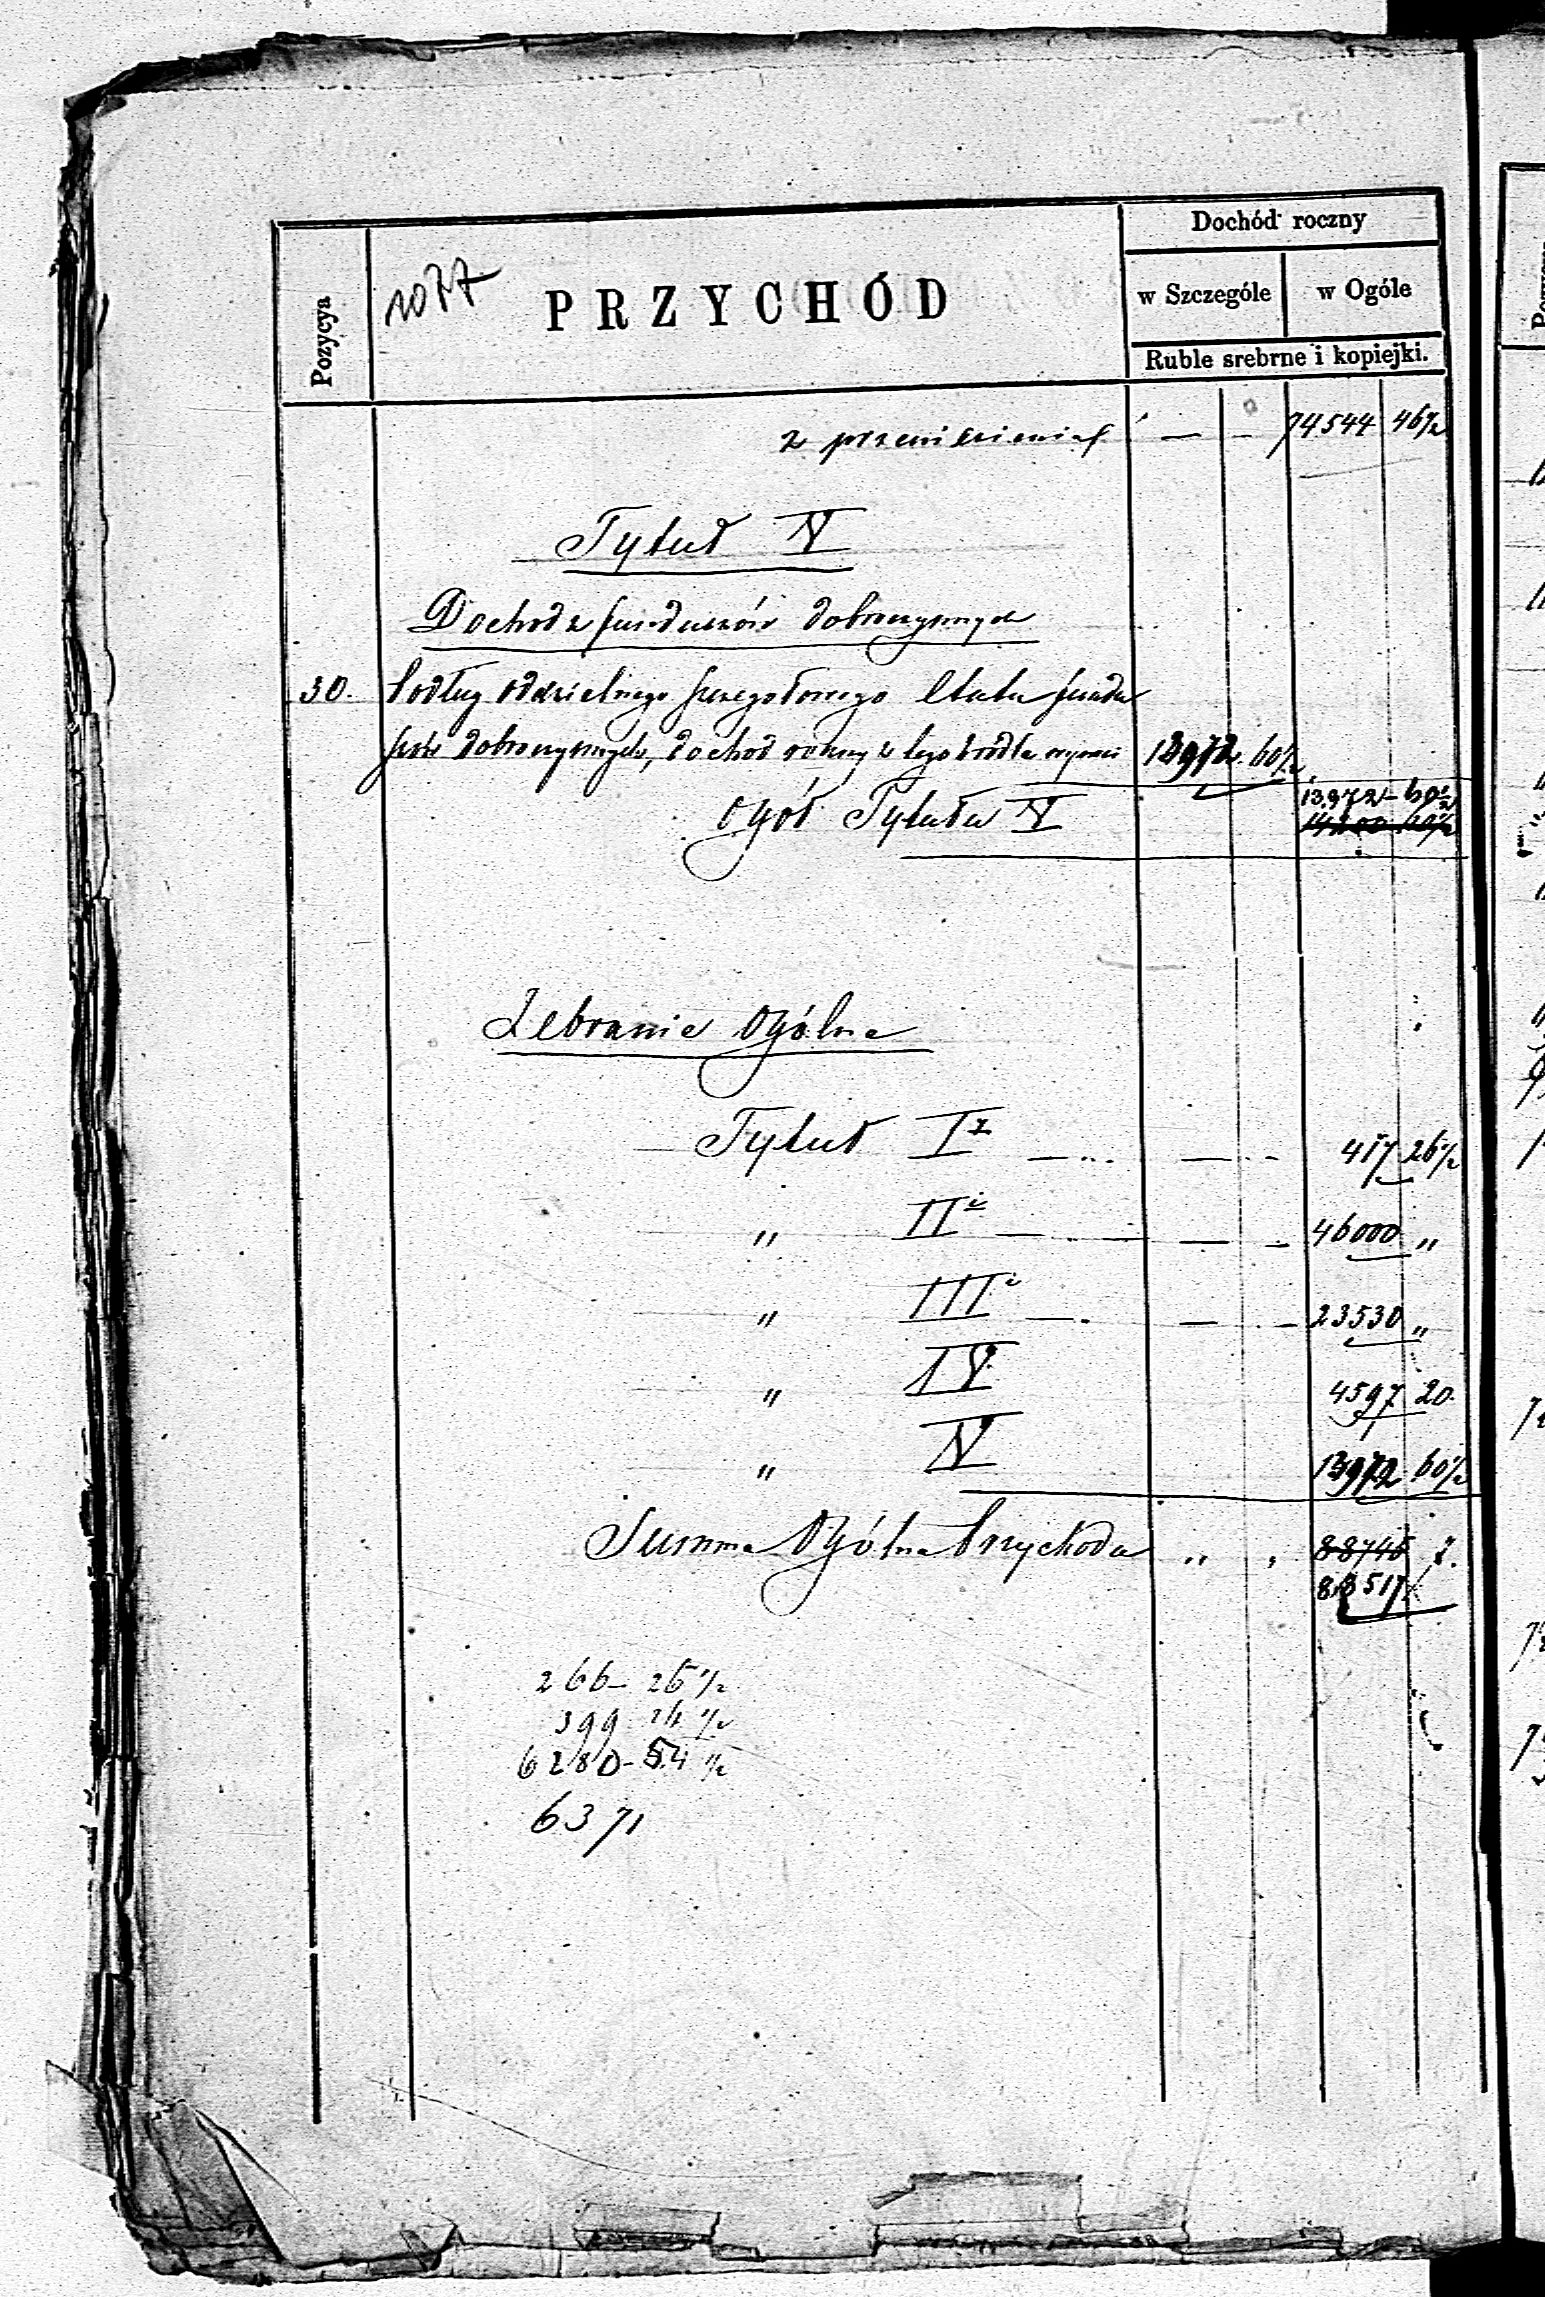 Dochód roczny
Pozycya
1077
PRZYCHÓD
w Szczególe
w Ogóle
Ruble srebrne i kopiejki.
z przeniesienia — — 74544 46½
Tytuł V
Dochód z funduszów dobroczynnych
30. Podług oddzielnego szczegółowego Etatu fundu
szów dobroczynnych, dochód roczny z tego źródła wynosi 13972 60½
13972 - 60½
Ogół Tytułu V
Zebranie Ogólne
Tytuł I — — 417 26½
„ II — — 46000 „
„ III — — 23530 „
„ IV 4597 20
„ V 13972 60½
Summa Ogólna Przychodu „ „ 88745 7.
88517
266 - 26½
399 - 24½
6280 - 54½
6371